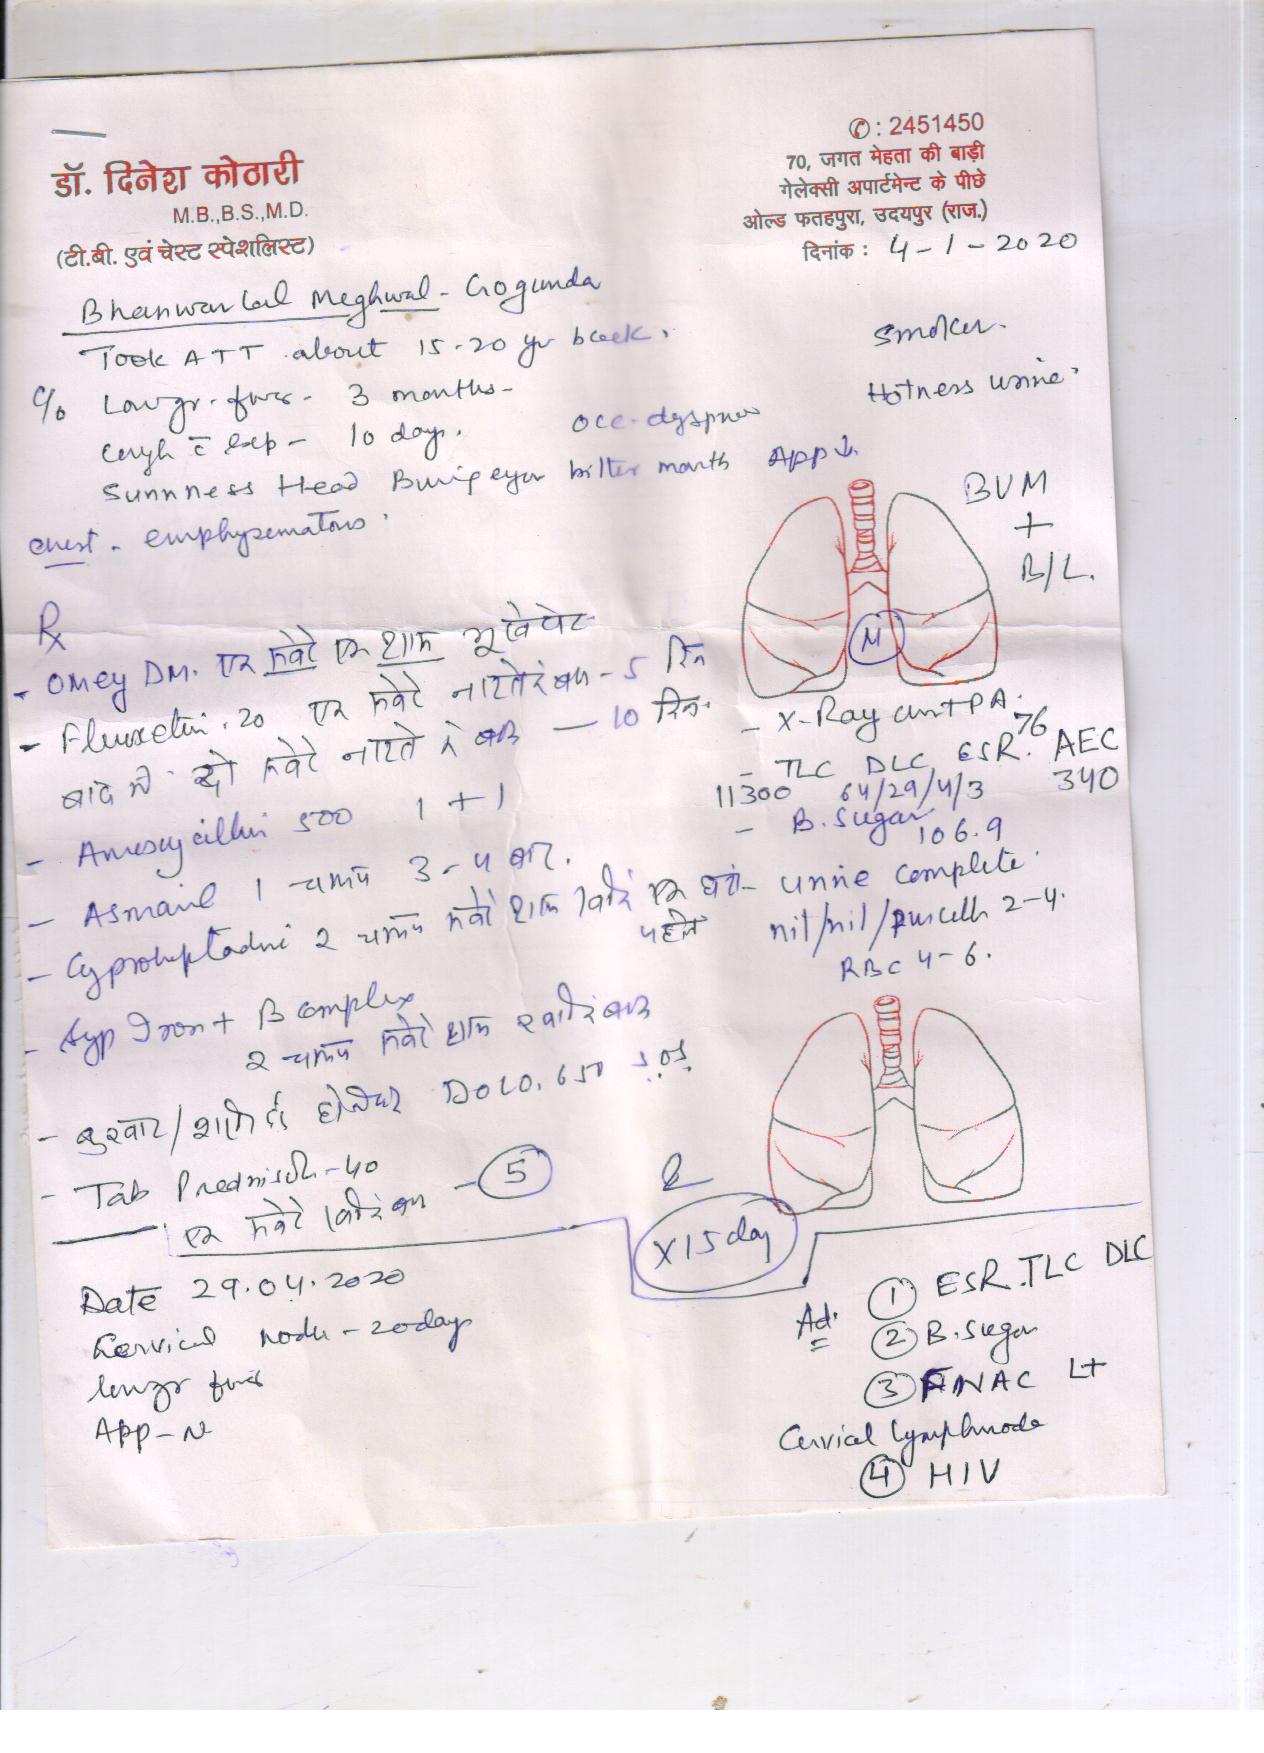 डॉ. दिनेश कोठारी
M.B.,B.S.,M.D.
(टी.बी. एवं चेस्ट स्पेशलिस्ट)
✆ : 2451450
70, जगत मेहता की बाड़ी
गेलेक्सी अपार्टमेन्ट के पीछे
ओल्ड फतहपुरा, उदयपुर (राज.)
दिनांक : 4-1-2020
Bhanwarlal Meghwal - Gogunda
Took ATT about 15-20 yr back.
Smoker.
C/o Low gr. fever - 3 months -
Hotness urine
Cough c̄ exp - 10 days.
occ. dyspnoea
Head bitter mouth App ↓.
Chest - emphysematous.
BVM
+
B/L.
M
Rx
- Omey DM. एक सवेरे एक शाम भूखे पेट
- 20 एक सवेरे नाश्ते के बाद - 5 दिन
बाद में दो सवेरे नाश्ते के बाद - 10 दिन
- Amoxycillin 500 1 + 1
- 1 चम्मच 3-4 बार.
- Cyproheptadine 2 चम्मच सवेरे शाम एक घंटे पहले
- Syp Iron + B complex
2 चम्मच सवेरे शाम बाद
- बुखार / होने पर DOLO. 650 S.O.S.
- Tab 40
एक सवेरे बाद - 5
X 15 day
- X-Ray chest PA.
- TLC DLC ESR. 76 AEC
11300 64/29/4/3 340
- B. Sugar
106.9
- Urine Complete
nil/nil/puscells 2-4.
RBC 4-6.
Date 29.04.2020
Cervical node - 20 days
low gr fever
App - N
Ad.
① ESR. TLC DLC
② B. Sugar
③ FNAC Lt
Cervical lymphnode
④ HIV